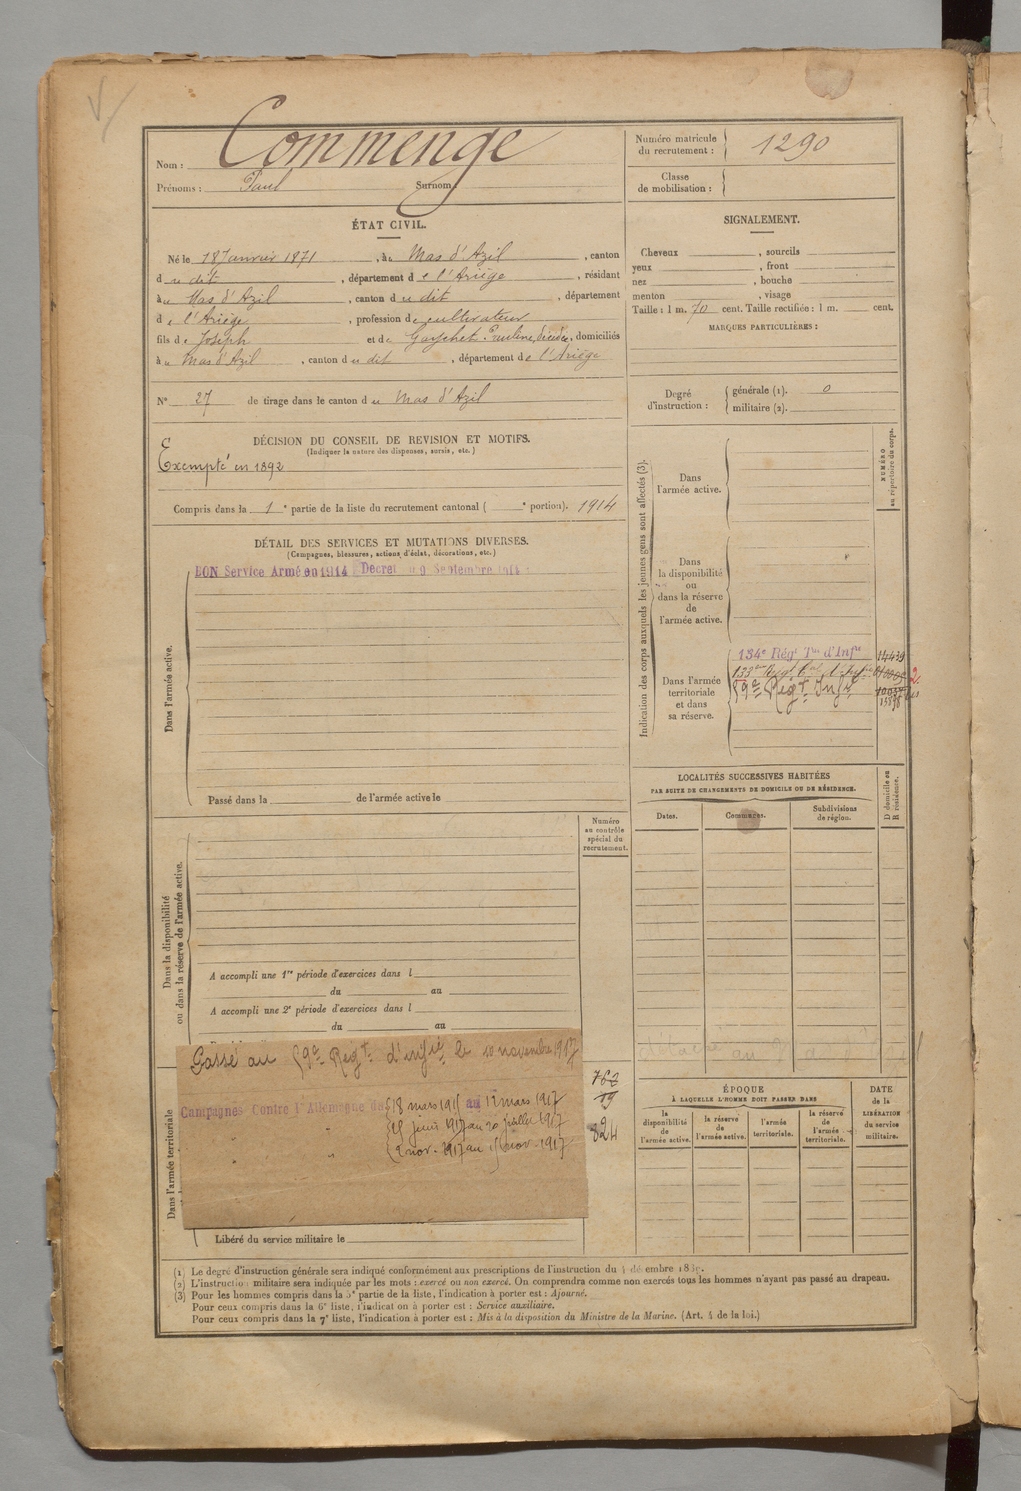 Nom : Commenge
Prénoms : Paul Surnom :
Numéro matricule du recrutement : 1290
Classe de mobilisation :
ÉTAT CIVIL.
Né le 18 Janvier 1871, à Mas d'Azil, canton
du dit, département de l'Ariège, résidant
au Mas d'Azil, canton du dit, département
de l'Ariège, profession de cultivateur
fils de Joseph et de Gaychet Pauline, décédée, domiciliés
au Mas d'Azil, canton du dit, département de l'Ariège
N° 27 de tirage dans le canton du Mas d'Azil
SIGNALEMENT.
Cheveux , sourcils
yeux , front
nez , bouche
menton , visage
Taille : 1 m. 70 cent. Taille rectifiée : 1 m. cent.
MARQUES PARTICULIÈRES :
Degré d'instruction : générale (1). 0
militaire (2).
DÉCISION DU CONSEIL DE REVISION ET MOTIFS.
(Indiquer la nature des dispenses, sursis, etc.)
Exempté en 1892
Compris dans la 1e partie de la liste du recrutement cantonal ( e portion). 1914
DÉTAIL DES SERVICES ET MUTATIONS DIVERSES.
(Campagnes, blessures, actions d'éclat, décorations, etc.)
BON Service Armé en 1914 Décret du 9 Septembre 1914
Dans l'armée active.
Passé dans la de l'armée active le
Indication des corps auxquels les jeunes gens sont affectés (3).
NUMÉRO au répertoire du corps.
Dans l'armée active.
Dans la disponibilité ou dans la réserve de l'armée active.
Dans l'armée territoriale et dans sa réserve.
134e Régt Tal d'Infie 14439
133me Régt Tal d'Infie
59e Régt Infie
LOCALITÉS SUCCESSIVES HABITÉES
PAR SUITE DE CHANGEMENTS DE DOMICILE OU DE RÉSIDENCE.
Dates. Communes. Subdivisions de région.
D domicile ou R résidence.
Numéro au contrôle spécial du recrutement.
Dans la disponibilité ou dans la réserve de l'armée active.
A accompli une 1re période d'exercices dans l
du au
A accompli une 2e période d'exercices dans l
du au
Passé au 59e Régt d'infie le 10 novembre 1917
Campagnes Contre l'Allemagne du 18 mars 1915 au 12 mars 1917
15 juin 1917 au 20 juillet 1917
2 nov. 1917 au 15 nov. 1917
762
19
824
Dans l'armée territoriale
Libéré du service militaire le
ÉPOQUE
À LAQUELLE L'HOMME DOIT PASSER DANS
la disponibilité de l'armée active. la réserve de l'armée active. l'armée territoriale. la réserve de l'armée territoriale.
DATE de la LIBÉRATION du service militaire.
(1) Le degré d'instruction générale sera indiqué conformément aux prescriptions de l'instruction du 4 décembre
(2) L'instruction militaire sera indiquée par les mots : exercé ou non exercé. On comprendra comme non exercés tous les hommes n'ayant pas passé au drapeau.
(3) Pour les hommes compris dans la 5e partie de la liste, l'indication à porter est : Ajourné.
Pour ceux compris dans la 6e liste, l'indication à porter est : Service auxiliaire.
Pour ceux compris dans la 7e liste, l'indication à porter est : Mis à la disposition du Ministre de la Marine. (Art. 4 de la loi.)